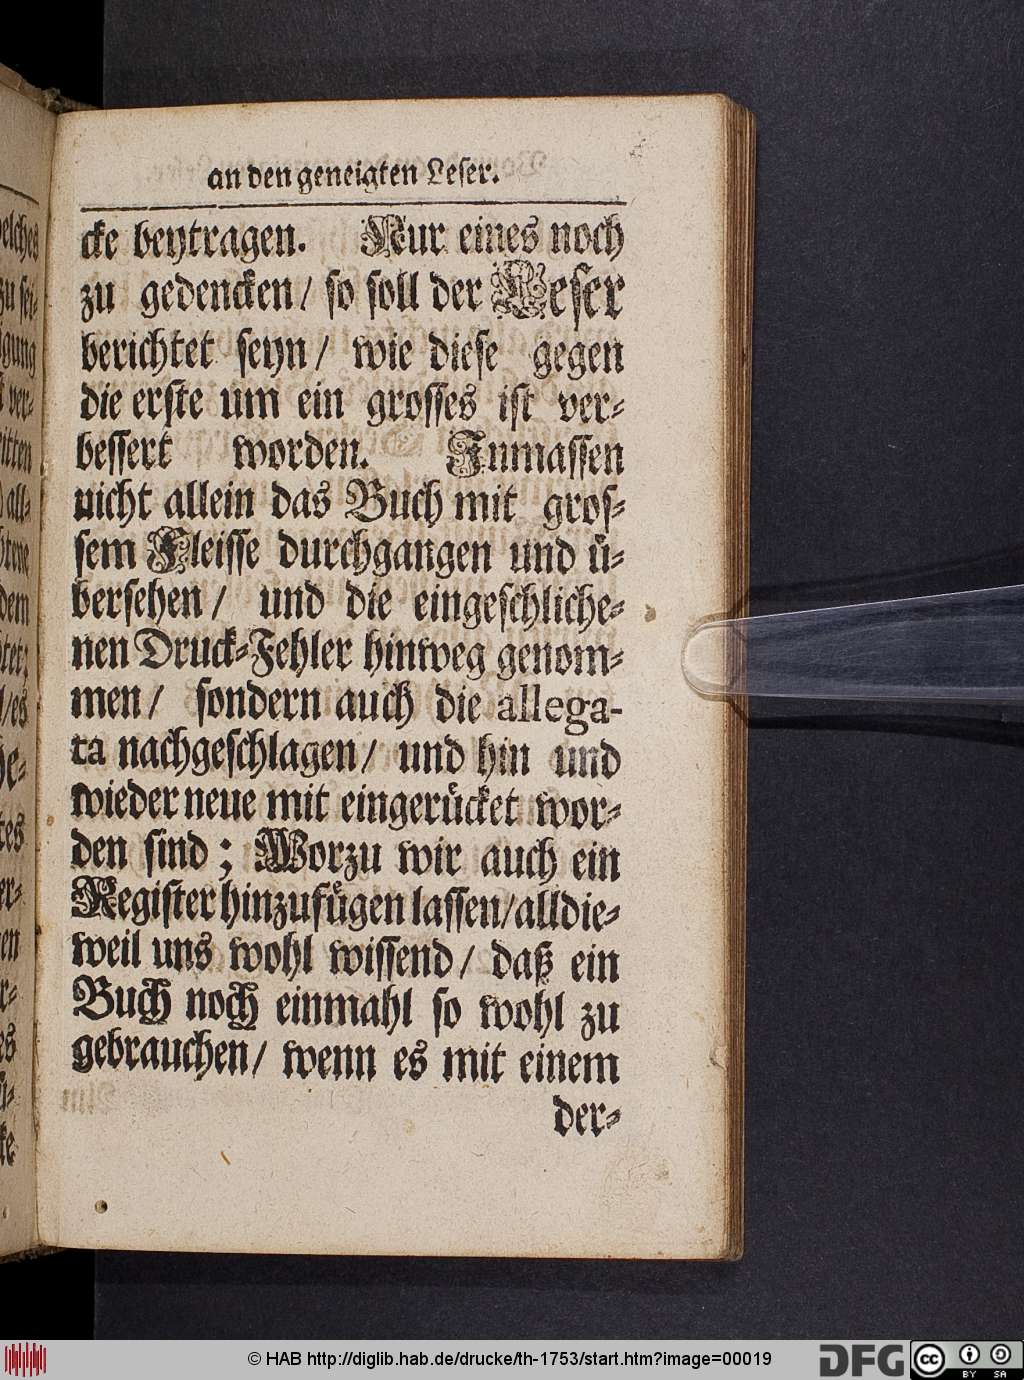 an den geneigten Leser.
cke beytragen. Nur eines noch
zu gedencken/ so soll der Leser
berichtet seyn/ wie diese gegen
die erste um ein grosses ist ver-
bessert worden. Inmassen
nicht allein das Buch mit gros-
sem Fleisse durchgangen und ü-
bersehen/ und die eingeschliche-
nen Druck-Fehler hinweg genom-
men/ sondern auch die allega-
ta nachgeschlagen/ und hin und
wieder neue mit eingerücket wor-
den sind; Worzu wir auch ein
Register hinzufügen lassen/alldie-
weil uns wohl wissend/ daß ein
Buch noch einmahl so wohl zu
gebrauchen/ wenn es mit einem
der-
© HAB http://diglib.hab.de/drucke/th-1753/start.htm?image=00019
DFG
cc BY SA